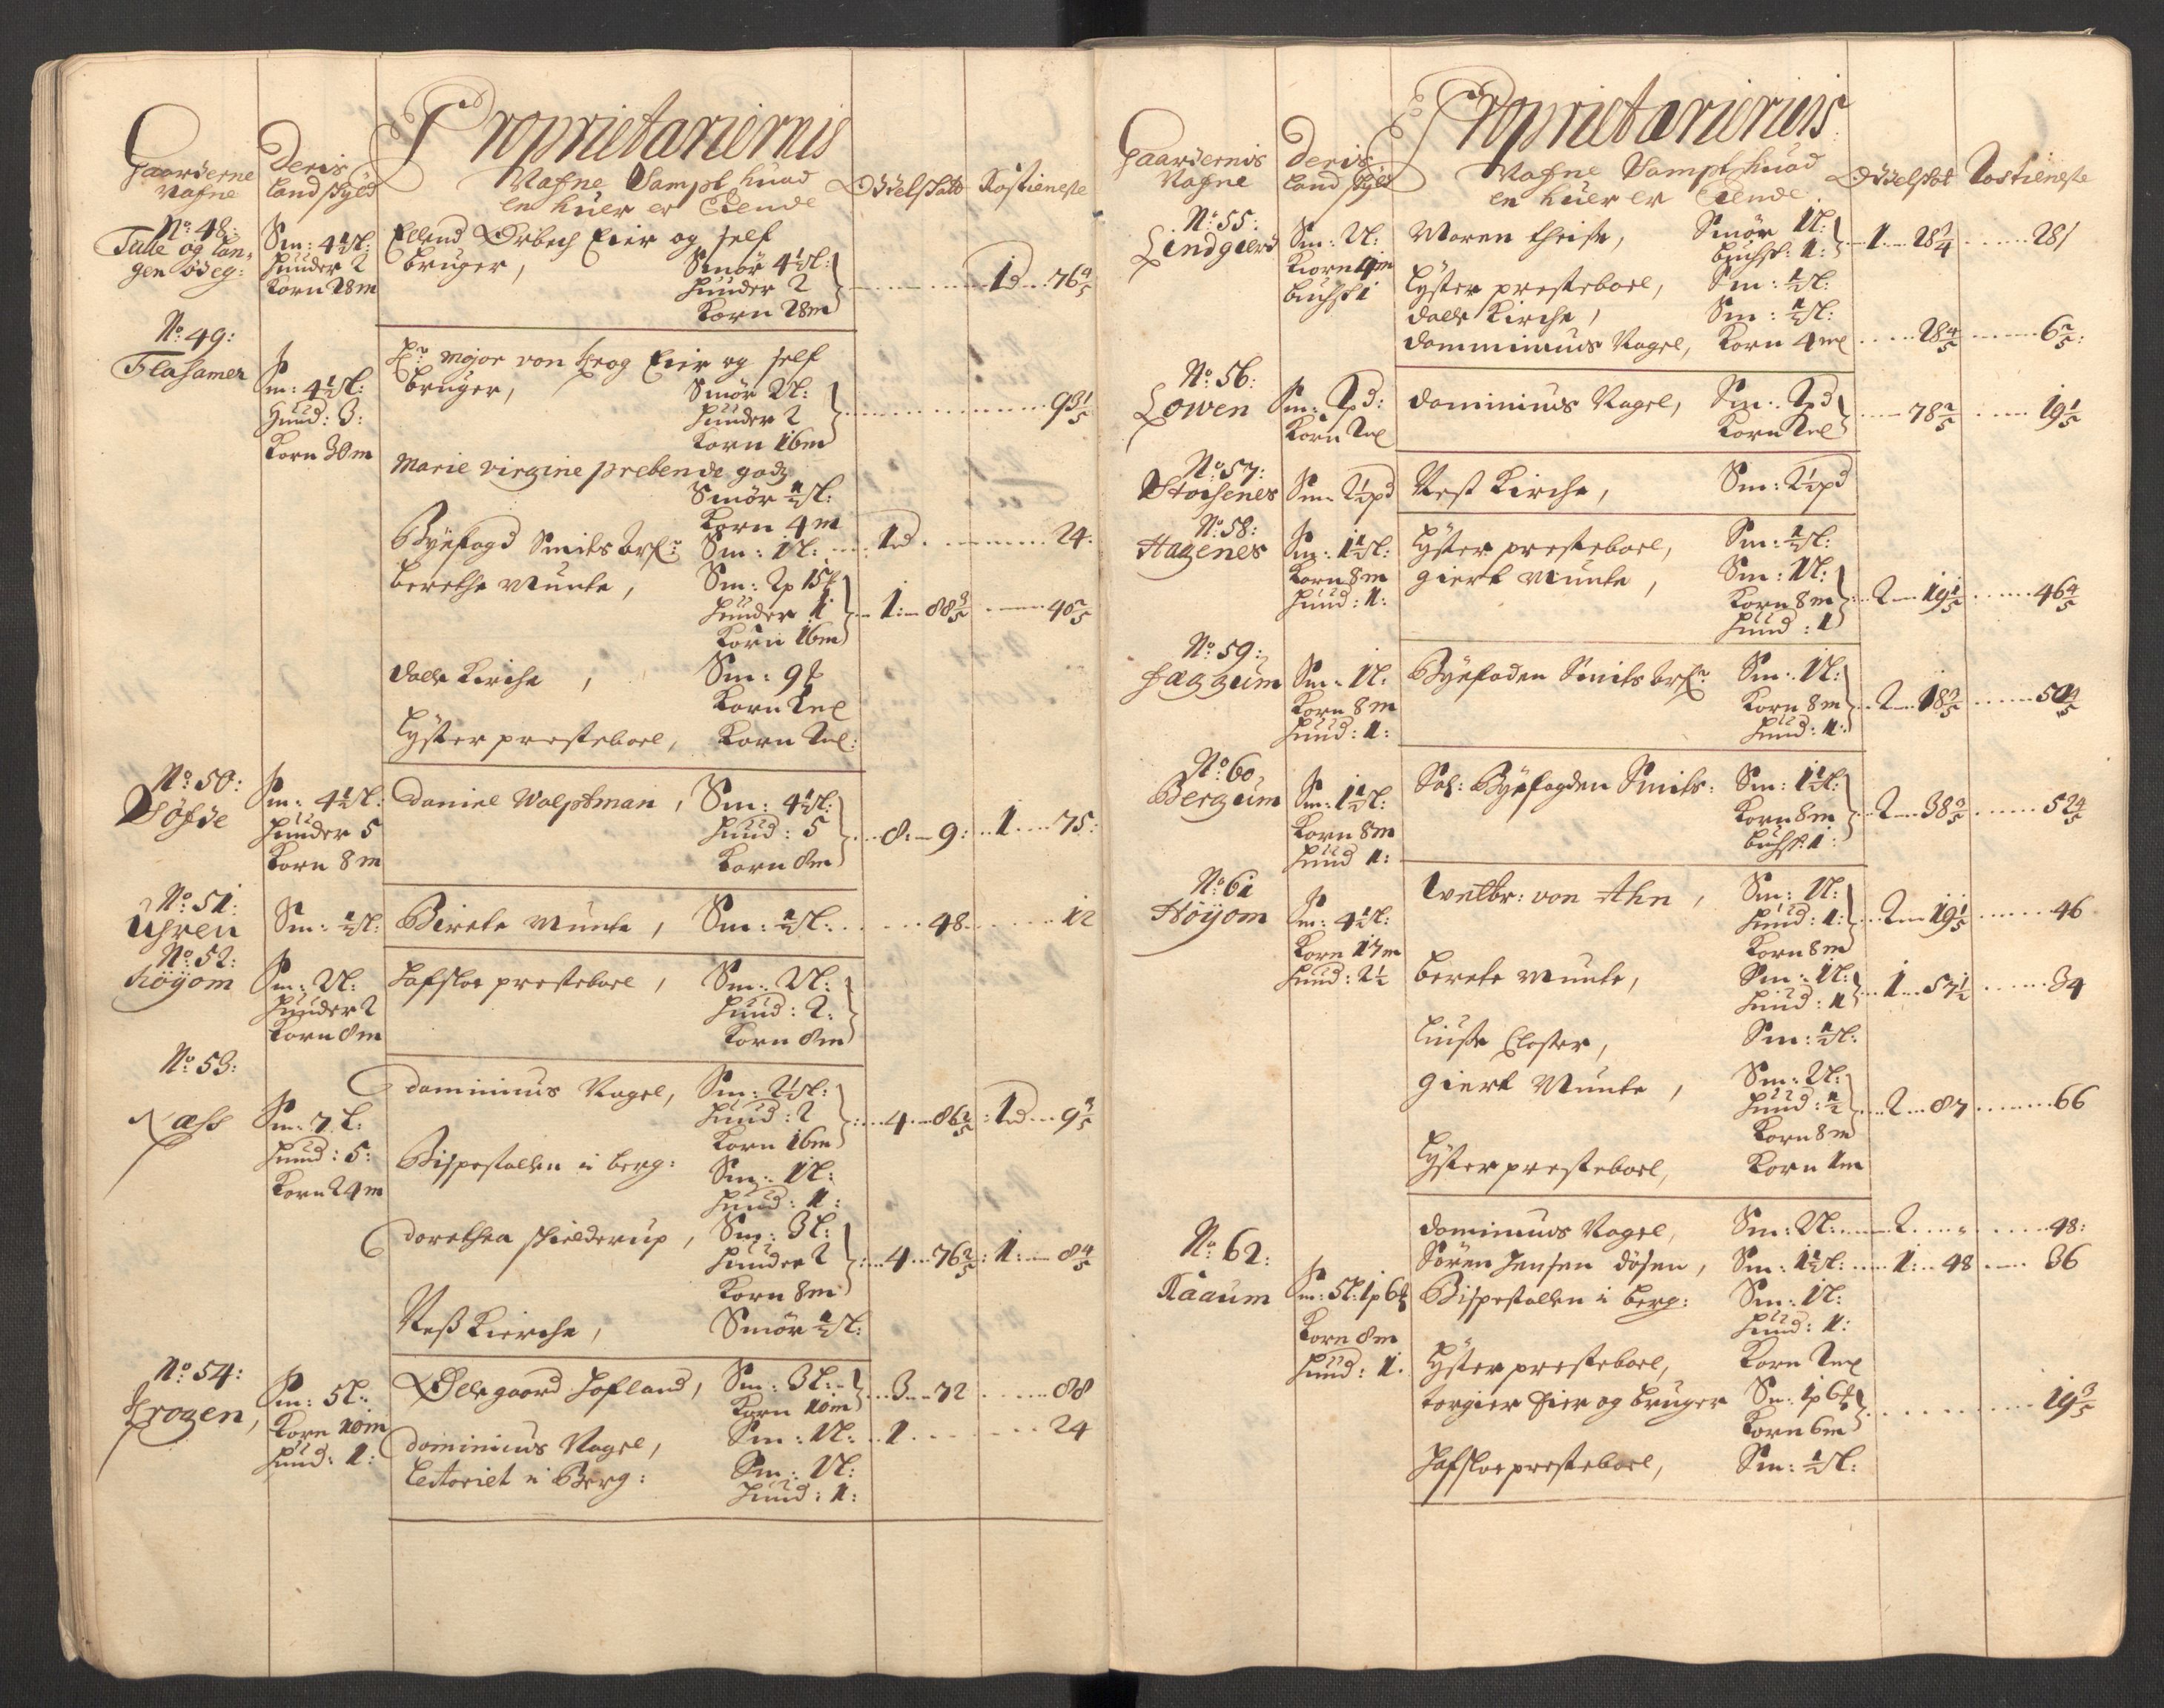 Gaarderne
Nafne
Deris
Landskyld
Proprietariernis
Nafne Sampt huad
en huer er Eiende
Odelskatt
Rostieneste
No: 48:
Tulle og Lan-
gen ødeg:
Sm: 4½ l:
Huuder 2
Korn 28 m
Ellend Orbech Eier og self
bruger, Smör 4½ l:
Huuder 2
Korn 28 m
1 d 76 4/5
No: 49:
Flahamer
Sm: 4½ l:
Huud: 3:
Korn 30 m
Hr: Major von Krog Eier og self
bruger, Smör 2 l:
Huuder 2
Korn 16 m
93 1/5
Marie virgine prebende godz
Smör ½ l:
Korn 4 m
Byefogd Smits Arfr: Sm: 1 l: 1 d 24:
Berethe Munte, Sm: 2 p 15
Huuder 1
Korn 16 m
1: 88 3/5 40 2/5
Dale Kirche, Sm: 9
Korn 2 ml
Lyster presteboel, Korn 2 ml:
No: 50:
Döfde
Sm: 4½ l:
Huuder 5
Korn 8 m
Daniel Wolpman, Sm: 4½ l:
Huud: 5
Korn 8 m
8: 9: 1 75:
No: 51:
Uhren
Sm: ½ l:
Birete Munte, Sm: ½ l: 48 12
No: 52:
Höyom
Sm: 2 l:
Huuder 2
Korn 8 m
Hafsloe presteboel, Sm: 2 l:
Huud: 2:
Korn 8 m
No: 53:
Næss
Sm: 7 l:
Huud: 5:
Korn 24 m
Dominicus Nagel, Sm: 2½ l:
Huud: 2
Korn 16 m
4 86 2/5 1 d 9 3/5
Bispestollen i Berg: Sm: 1 l:
Huud: 1:
Dorethea Schielderup, Sm: 3 l:
Huuder 2
Korn 8 m
4 76 2/5 1: 8 4/5
Ness Kierche, Smör ½ l:
No: 54:
Krogen,
Sm: 5 l:
Korn 10 m
Huud: 1:
Ollegaard Hofland, Sm: 3 l:
Korn 10 m
3 72 88
Dominicus Nagel, Sm: 1 l: 1 24
Lectoriet i Berg: Sm: 1 l:
Huud: 1:
Gaardernis
Nafne
Deris
Landskyld
Proprietariernis
Nafne Sampt huad
en huer er Eiende
Odelskat
Rostieneste
No: 55:
Lindgierd
Sm: 2 l:
Kiorn 4 m
Buchsk 1
Maren Theiste, Smör 1 l:
Buchsk: 1:
1 28 3/4 28
Lyster presteboel, Sm: ½ l:
Dale Kirche, Sm: ½ l:
Domminicus Nagel, Korn 4 ml 28 4/5 6 2/5:
No: 56:
Lowen
Sm: 2 pd:
Korn 2 ml
Dominicus Nagel, Sm: 2 pd
Korn 2 ml
78 2/5 19 1/5
No: 57:
Stochenes
Sm: 2½ pd
Nest Kirche, Sm: 2½ pd
No: 58:
Hagenes
Sm: 1½ l:
Korn 8 m
Huud: 1:
Lyster presteboel, Sm: ½ l:
Giert Munte, Sm: 1 l:
Korn 8 m
Huud: 1
2 19 1/5 46 4/5
No: 59:
Faggum
Sm: 1 l:
Korn 8 m
Huud: 1:
Byefoden Smits Arfr: Sm: 1 l:
Korn 8 m
Huud: 1:
2 18 3/5 50 4/5
No: 60,
Bergum
Sm: 1½ l:
Korn 8 m
Huud 1:
Sal: Byefogden Smits: Sm: 1½ l:
Korn 8 m
Buchsk: 1:
2 38 3/5 52 4/5
No: 61
Höyom
Sm: 4½ l:
Korn 17 m
Huud: 2½
Welbr: von Ahn, Sm: 1 l:
Huud: 1:
Korn 8 m
2 19 1/5 46
Berete Munte, Sm: 1 l:
Huud: 1
1 57 1/2 34
Liuse Closter, Sm: ½ l:
Giert Munte, Sm: 2 l:
Huud: ½
Korn 8 m
2 87 66
Lyster presteboel, Korn 1 m
No: 62:
Raaum
Sm: 5 l: 1 p 6
Korn 8 m
Huud: 1:
Dominicus Nagel, Sm: 2 l: 2 „ 48:
Sören Jensen Dösen, Sm: 1½ l: 1: 48 36
Bispestollen i Berg: Sm: 1 l:
Huud: 1:
Lyster presteboel, Korn 2 ml
Torgier Eier og bruger Sm: 1 p 6
Korn 6 m
19 3/5
Hafsloe presteboel, Sm: ½ l: